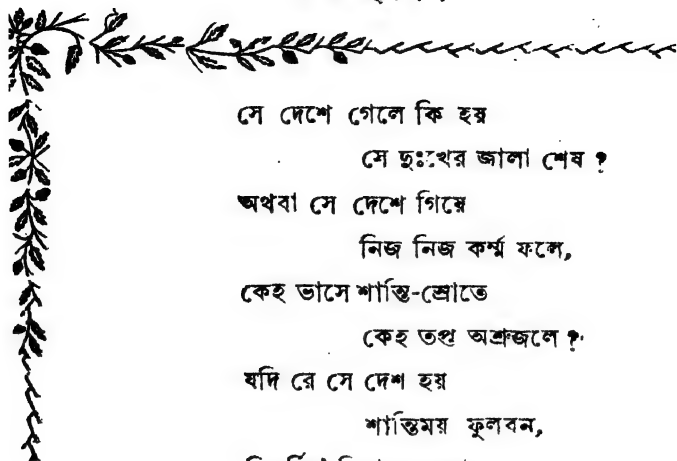 সে দেশে গেলে কি হয়
সে দুঃখের জালা শেষ ?
অথবা সে দেশে গিয়ে
নিজ নিজ কর্ম্ম ফলে,
কেহ ভাসে শান্তি-স্রোতে
কেহ তপ্ত অশ্রুজলে ?
যদি রে সে দেশ হয়
শান্তিময় ফুলবন,